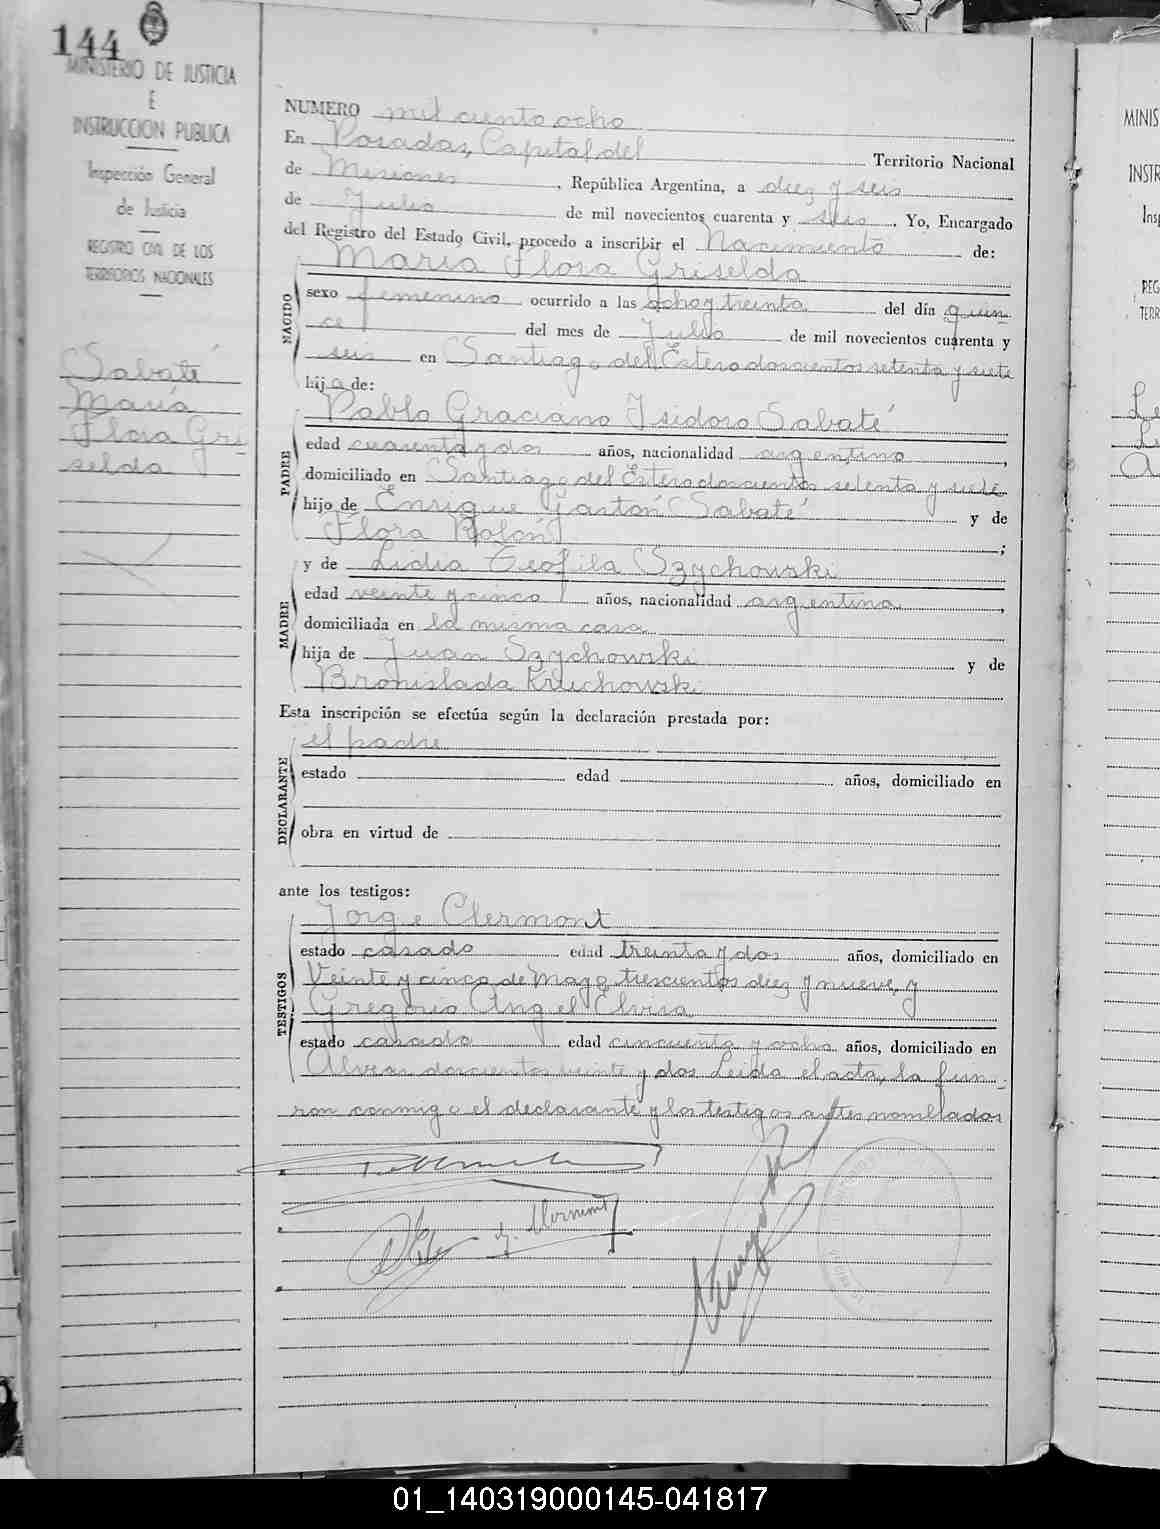 144
MINISTERIO DE JUSTICIA
E
INSTRUCCION PUBLICA
Inspección General
de Justicia
REGISTRO CIVIL DE LOS
TERRITORIOS NACIONALES
Sabaté
María
Flora Gri-
selda
NUMERO mil ciento ocho
En Posadas, Capital del Territorio Nacional
de Misiones, República Argentina, a diez y seis
de Julio de mil novecientos cuarenta y seis. Yo, Encargado
del Registro del Estado Civil, procedo a inscribir el Nacimiento de:
NACIDO
María Flora Griselda
sexo femenino ocurrido a las ocho y treinta del día quin-
ce del mes de Julio de mil novecientos cuarenta y
seis en Santiago del Estero doscientos setenta y siete
hija de:
PADRE
Pablo Graciano Isidoro Sabaté
edad cuarenta y dos años, nacionalidad argentino,
domiciliado en Santiago del Estero doscientos setenta y siete
hijo de Enrique Gastón Sabaté y de
Flora Rolón;
y de Lidia Teofila Szychowski
MADRE
edad veinte y cinco años, nacionalidad argentina,
domiciliada en la misma casa
hija de Juan Szychowski y de
Bronislada Kruchowski
Esta inscripción se efectúa según la declaración prestada por:
DECLARANTE
el padre
estado edad años, domiciliado en
obra en virtud de
ante los testigos:
TESTIGOS
Jorge Clermont
estado casado edad treinta y dos años, domiciliado en
Veinte y cinco de Mayo trescientos diez y nueve, y
Gregorio Angel Elvira
estado casado edad cincuenta y ocho años, domiciliado en
doscientos veinte y dos Leida el acta, la firma-
ron conmigo el declarante y los testigos antes nombrados
J. Clermont
MINIS
INSTR
Insp
REG
TERR
01_140319000145-041817